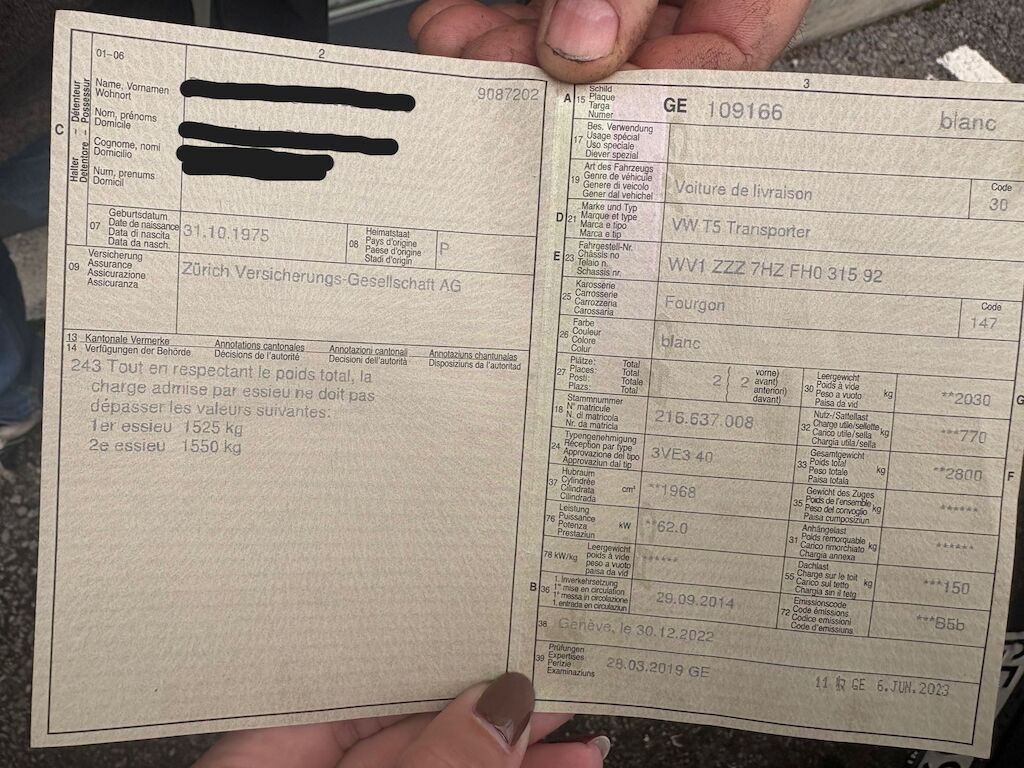 01-06
2
C
Halter – Détenteur
Detentore – Possessur
Name, Vornamen
Wohnort
Nom, prénoms
Domicile
Cognome, nomi
Domicilio
Num, prenums
Domicil
9087202
07
Geburtsdatum
Date de naissance
Data di nascita
Data da nasch.
31.10.1975
08
Heimatstaat
Pays d'origine
Paese d'origine
Stadi d'origin
P
09
Versicherung
Assurance
Assicurazione
Assicuranza
Zürich Versicherungs-Gesellschaft AG
13 Kantonale Vermerke Annotations cantonales Annotazioni cantonali Annotaziuns chantunalas
14 Verfügungen der Behörde Décisions de l'autorité Decisioni dell'autorità Disposiziuns da l'autoritad
243 Tout en respectant le poids total, la
charge admise par essieu ne doit pas
dépasser les valeurs suivantes:
1er essieu 1525 kg
2e essieu 1550 kg
3
A 15
Schild
Plaque
Targa
Numer
GE 109166 blanc
17
Bes. Verwendung
Usage spécial
Uso speciale
Diever spezial
19
Art des Fahrzeugs
Genre de véhicule
Genere di veicolo
Gener dal vehichel
Voiture de livraison
Code
30
D 21
Marke und Typ
Marque et type
Marca e tipo
Marca e tip
VW T5 Transporter
E 23
Fahrgestell-Nr.
Châssis no
Telaio n.
Schassis nr.
WV1 ZZZ 7HZ FH0 315 92
25
Karosserie
Carrosserie
Carrozzeria
Carossaria
Fourgon
Code
147
26
Farbe
Couleur
Colore
Colur
blanc
27
Plätze: Total
Places: Total
Posti: Totale
Plazs: Total
2 { 2
vorne)
avant)
anteriori)
davant)
30
Leergewicht
Poids à vide
Peso a vuoto
Paisa da vid
kg
**2030
G
18
Stammnummer
N° matricule
N. di matricola
Nr. da matricla
216.637.008
32
Nutz-/Sattellast
Charge utile/sellette
Carico utile/sella
Chargia utila/sella
kg
***770
24
Typengenehmigung
Réception par type
Approvazione del tipo
Approvaziun dal tip
3VE3 40
33
Gesamtgewicht
Poids total
Peso totale
Paisa totala
kg
**2800
F
37
Hubraum
Cylindrée
Cilindrata
Cilindrada
cm³
**1968
35
Gewicht des Zuges
Poids de l'ensemble
Peso del convoglio
Paisa cumposiziun
kg
******
76
Leistung
Puissance
Potenza
Prestaziun
kW
**62.0
31
Anhängelast
Poids remorquable
Carico rimorchiato
Chargia annexa
kg
******
78 kW/kg
Leergewicht
poids à vide
peso a vuoto
paisa da vid
******
55
Dachlast
Charge sur le toit
Carico sul tetto
Chargia sin il tetg
kg
***150
B 36
1. Inverkehrsetzung
1re mise en circulation
1a messa in circolazione
1. entrada en circulaziun
29.09.2014
72
Emissionscode
Code émissions
Codice emissioni
Code d'emissiuns
***B5b
38
Genève, le 30.12.2022
39
Prüfungen
Expertises
Perizie
Examinaziuns
28.03.2019 GE
11 GE 6.JUN.2023